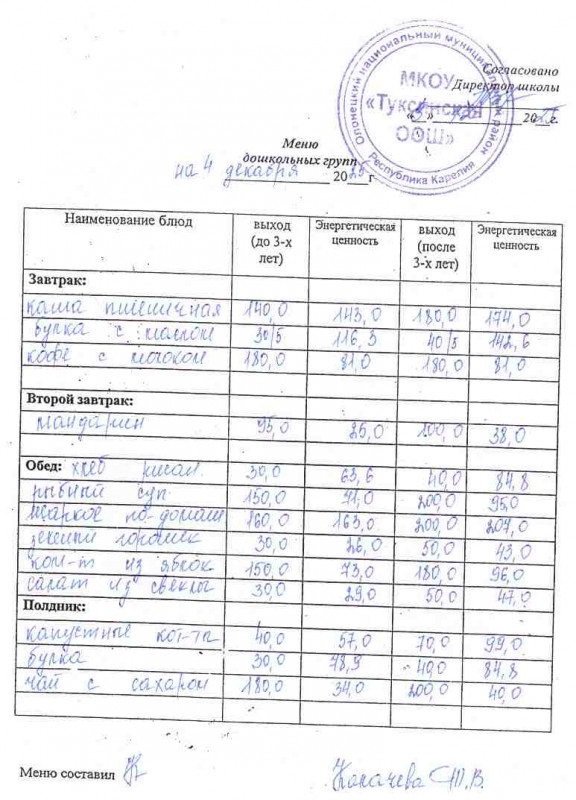 Согласовано
Директор школы
20 г.
Олонецкий национальный муниципальный район
Республика Карелия
МКОУ
«Туксинская
ООШ»
Меню
дошкольных групп
на 4 декабря 2025 г
Наименование блюд | выход (до 3-х лет) | Энергетическая ценность | выход (после 3-х лет) | Энергетическая ценность
Завтрак:
каша пшеничная 140,0 143,0 180,0 174,0
булка с маслом 30/5 116,3 40/5 142,6
кофе с молоком 180,0 81,0 180,0 81,0
Второй завтрак:
мандарин 95,0 25,0 200,0 38,0
Обед: хлеб ржан. 30,0 63,6 40,0 84,8
рыбный суп 150,0 71,0 200,0 95,0
жаркое по-домаш 160,0 163,0 200,0 204,0
зеленый горошек 30,0 26,0 50,0 43,0
ком-т из яблок 150,0 73,0 180,0 96,0
салат из свеклы 30,0 29,0 50,0 47,0
Полдник:
капустные кот-ты 40,0 57,0 70,0 99,0
булка 30,0 78,9 40,0 84,8
чай с сахаром 180,0 34,0 200,0 40,0
Меню составил